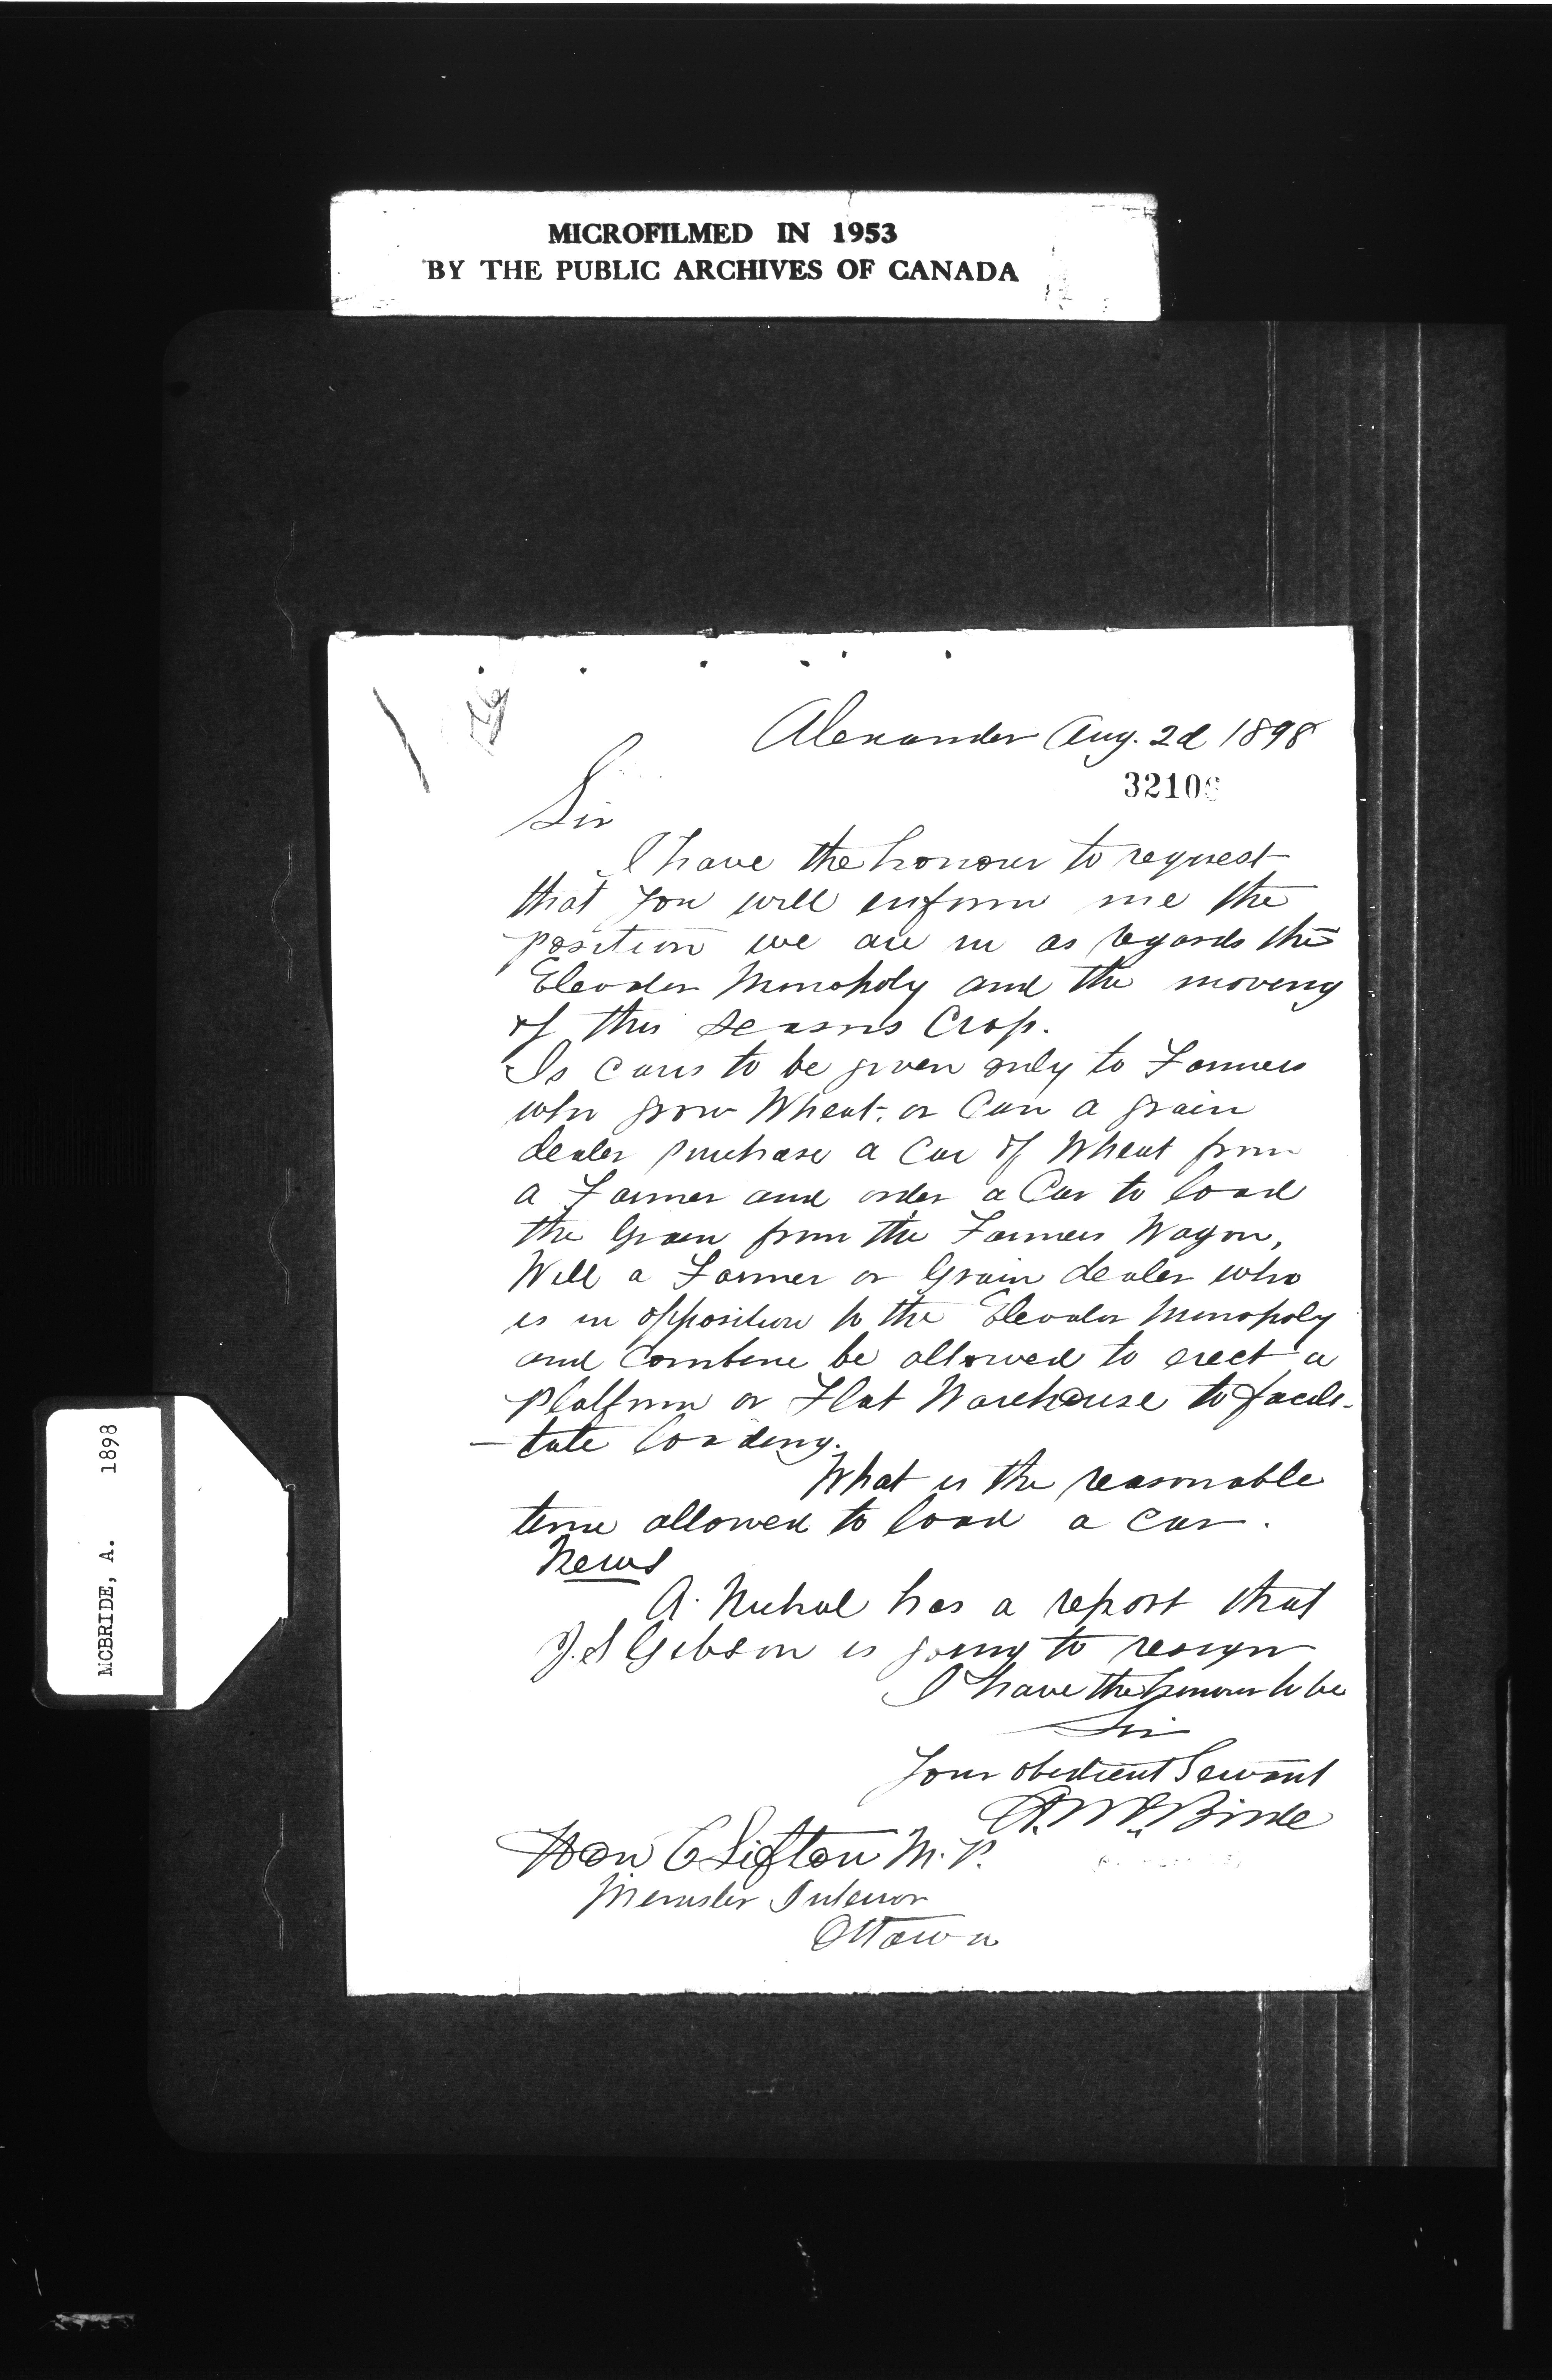 MICROFILMED IN 1953
BY THE PUBLIC ARCHIVES OF CANADA
Alexander Aug. 2d 1898
3210
Sir
I have the honour to request
that you will inform me the
position we are in as regards the
Elevator Monopoly and the moving
of this seasons Crop.
Is cars to be given only to Farmers
who grow Wheat, or Can a grain
dealer purchase a Car of Wheat from
a Farmer and order a Car to load
the Grain from the Farmers Wagon,
Will a Farmer or Grain dealer who
is in opposition to the Elevator Monopoly
and Combine be allowed to erect a
platform or Flat Warehouse to facili-
-tate loading.
What is the reasonable
time allowed to load a car.
News
A. Nichol has a report that
J. S Gibson is going to resign
I have the honour to be
Sir
Your obedient Servant
A. McBride
Hon C Sifton M.P.
Minister Interior
Ottawa
MCBRIDE, A. 1898